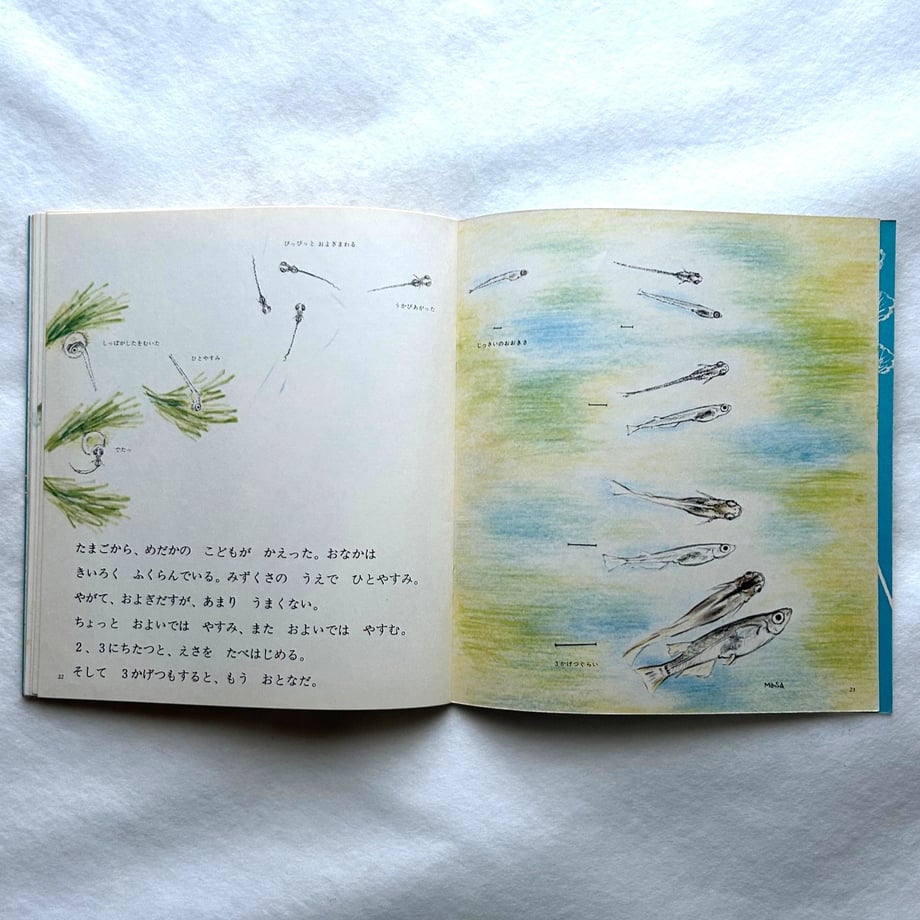 ぴっぴっと およぎまわる
うかびあがった
しっぽがしたをむいた
ひとやすみ
でたっ
たまごから、めだかの　こどもが　かえった。おなかは
きいろく　ふくらんでいる。みずくさの　うえで　ひとやすみ。
やがて、およぎだすが、あまり　うまくない。
ちょっと　およいでは　やすみ、また　およいでは　やすむ。
２、３にちたつと、えさを　たべはじめる。
そして　３かげつもすると、もう　おとなだ。
22
じっさいのおおきさ
３かげつぐらい
MASA
23